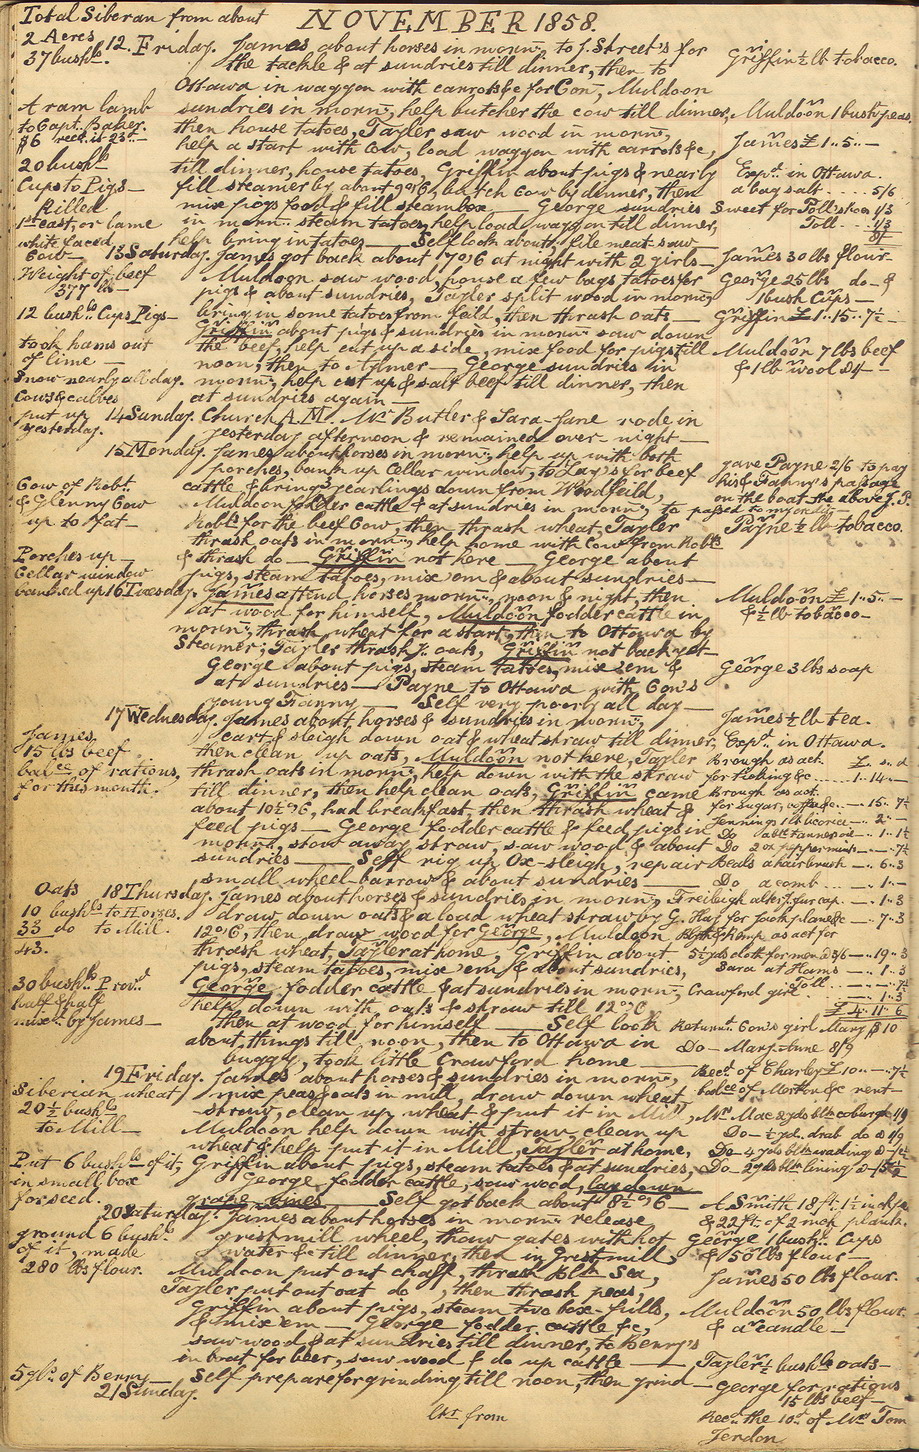 NOVEMBER 1858.
Total Siberan from about
2 Acres
37 bushls.
12. Friday. James, about horses in morng, to J. Street's for
the tackle & at sundries till dinner, then to
Ottawa in waggon with carrots &c for Con-, Muldoon
sundries in morng, help butcher the cow till dinner,
then house tatoes, Tayler saw wood in morng,
help a start with Cow, load waggon with carrots &c,
till dinner, house tatoes, Griffin about pigs & nearly
fill steamer by about 9 o'6, butch Cow by dinner, then
mix pigs food & fill steambox — George sundries
in morng. steam tatoes, help load waggon till dinner,
help bring in tatoes — Self look about. file meat saw
Griffin ½ lb tobacco.
Muldoon 1 bushl peas.
James £ 1..5..—
Expd. in Ottawa.
a bag salt.... 5/6
Sweet for Poll's shoes 1/3
Toll... 1/3
8/
A ram lamb
to Capt. Baker.
$6 recd. is 25s—
20 bushls
Cups to Pigs—
Killed
1st east, or lame
white faced
Cow—
13 Saturday. James got back about 7 o'6 at night with 2 girls—
Muldoon saw wood, house a few bags tatoes for
pigs & about sundries, Tayler split wood in morng,
bring in some tatoes from feild, then thrash oats —
Griffin about pigs & sundries in morng saw down
the beef, help cut up a side, mix food for pigs till
noon, then to Aylmer — George sundries in
morng, help cut up & salt beef till dinner, then
at sundries again —
James 30 lbs flour.
George 25 lbs do- &
1 bush Cups—
Griffin £ 1..15..7½—
Muldoon 7 lbs beef
& 1 lb wool
Weight of beef
377 lbs—
12 bushls Cups Pigs—
took hams out
of lime—
Snow nearly all day.
Cows & calves
put up
yesterday.
14 Sunday. Church A.M. Mr Butler & Sara-Jane rode in
yesterday afternoon & remained over-night—
15 Monday. James about horses in morng, help up with both
porches, bank up Cellar window, to Lay's for beef
cattle & bring 3 yearlings down from Woodfeild,
Muldoon fodder cattle & at sundries in morng, to
Robts for the beef Cow, then thrash wheat, Tayler
thrash oats in morng, help home with Cow from Robts
& thrash do— Griffin not here — George about
pigs, steam tatoes, mix 'em & about sundries—
gave Payne 2/6 to pay
his & Fanny's passage
on the boat the above J. P.
passed to my credit
Payne ½ lb tobacco.
Cow of Robt.
& Glenny Cow
up to fat—
Porches up—
Cellar window
banked up
16 Tuesday. James attend horses morng, noon & night, then
at wood for himself, Muldoon fodder cattle in
morng, thrash wheat for a start, then to Ottawa by
Steamer; Tayler thrashg oats, Griffin not back yet—
George about pigs, steam tatoes, mix 'em &
at sundries — Payne to Ottawa with Con's
young Fanny — Self very poorly all day—
Muldoon £ 1..5..—
& ½ lb tobacco—
George 3 lbs soap
17 Wednesday. James about horses & sundries in morng,
cart & sleigh down oat & wheat straw till dinner,
then clean up oats, Muldoon not here, Tayler
thrash oats in morng, help down with the straw
till dinner, then help clean oats, Griffin came
about 10½ o'6, had breakfast, then thrash wheat &
feed pigs — George fodder cattle & feed pigs in
morng, stow away straw, saw wood & about
sundries — Self rig up Ox-sleigh, repair
small wheel-barrow & about sundries —
James ½ lb tea.
Expd. in Ottawa.
Brough as act. £. s. d
1..14..—
Brough as act.
for sugar, coffee &c.— 15.. 7½
Jennings 1 lb licorice —.. 2..—
Do 2 oz peppermint —..—..7½
Beals a hair brush —.. 6..3
Do a comb ... —.. 1..—
James,
15 lbs beef
balce. of rations,
for this month.
18 Thursday. James about horses & sundries in morng,
draw down oats & a load wheat straw by
12 o'6, then draw wood for George, Muldoon
thrash wheat, Tayler at home, Griffin about
pigs, steam tatoes, mix 'em & about sundries,
George fodder cattle & at sundries in morng,
help down with oats & straw till 12 o'C
then at wood for himself — Self look
about things till noon, then to Ottawa in
buggy, took little Crawford home —
Freiburgh alterg fur cap. —.. 1..3
G. Hay for jack plane &c —.. 7..3
Blyth & Kemp as act for
5¼ yds cloth for men @ 3/6 —.. 19..3
Sara at Hams —.. 1..3
Toll
Crawford girl —.. 1..3
£ 4.. 11.. 6
Returnd. Con's girl Mary $10
Do— Mary-Anne 8/9
Oats
10 bushls to Horses,
33 do to Mill.
43.
30 bushls Provd
half & half
mixd. by James—
19 Friday. James about horses & sundries in morng,
mix peas & oats in mill, draw down wheat
straw, clean up wheat & put it in Mill,
Muldoon help down with straw, clean up
wheat & help put it in Mill, Tayler at home,
Griffin about pigs, steam tatoes & at sundries,
George fodder cattle, saw wood, lay down
grape vines — Self got back about 8½ o'6—
Recd. of Charley £ 10..—..7½
balce of Morton &c rent—
Do— ½ yd. drab do @ 1/9
Do— 4 yds blk wading
Do— 2 yds blk lining
Siberian wheat
20½ bushls
to Mill—
Put 6 bushls of it,
in small box
for seed.
20 Saturday. James about horses in morng release
grestmill wheel, thaw gates with hot
water &c till dinner, then in Grestmill
Muldoon put out chaff, thrash Blk Sea,
Tayler put out oat do, then thrash peas,
Griffin about pigs, steam two box-fulls,
& mix 'em — George fodder cattle &c,
saw wood & at sundries till dinner, to Berry's
in boat for beer, saw wood & do up cattle —
Self prepare for grinding till noon, then grind—
A Smith 18 ft. 1½ inch pe
& 22 ft. of 2 inch plank.
George 1 bushl. Cups
& 50 lbs flour—
James 50 lbs flour.
Muldoon 50 lbs flour.
& a candle—
Tayler ½ bushls oats—
George for rations
15 lbs beef—
Recd. the 10s. of Mrs Tom
Jerdon
ground 6 bushls
of it, made
280 lbs flour.
5 gls. of Berry—
21 Sunday.
from